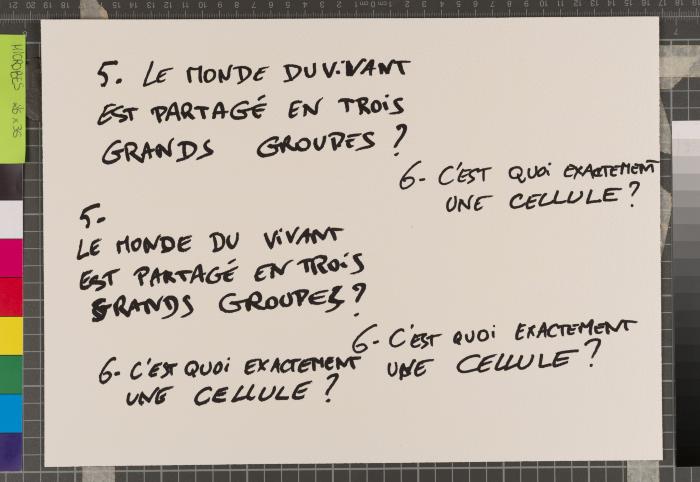 5. LE MONDE DU ViVANT
EST PARTAGÉ EN TROiS
GRANDS GROUPES ?
6- C'EST QUOi EXACTEMENT
UNE CELLULE ?
5.
LE MONDE DU ViVANT
EST PARTAGÉ EN TROiS
GRANDS GROUPES ?
6- C'EST QUOi EXACTEMENT
UNE CELLULE ?
6- C'EST QUOi EXACTEMENT
UNE CELLULE ?
MICROBES